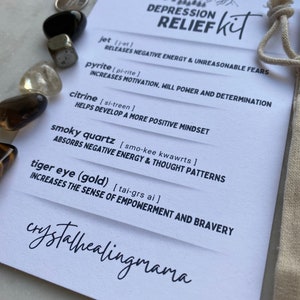 DEPRESSION
RELIEF kit
jet [ j-et ]
RELEASES NEGATIVE ENERGY & UNREASONABLE FEARS
pyrite [ pi-rite ]
INCREASES MOTIVATION, WILL POWER AND DETERMINATION
citrine [ si-treen ]
HELPS DEVELOP A MORE POSITIVE MINDSET
smoky quartz [ smo-kee kwawrts ]
ABSORBS NEGATIVE ENERGY & THOUGHT PATTERNS
tiger eye (gold) [ tai-grs ai ]
INCREASES THE SENSE OF EMPOWERMENT AND BRAVERY
crystalhealingmama